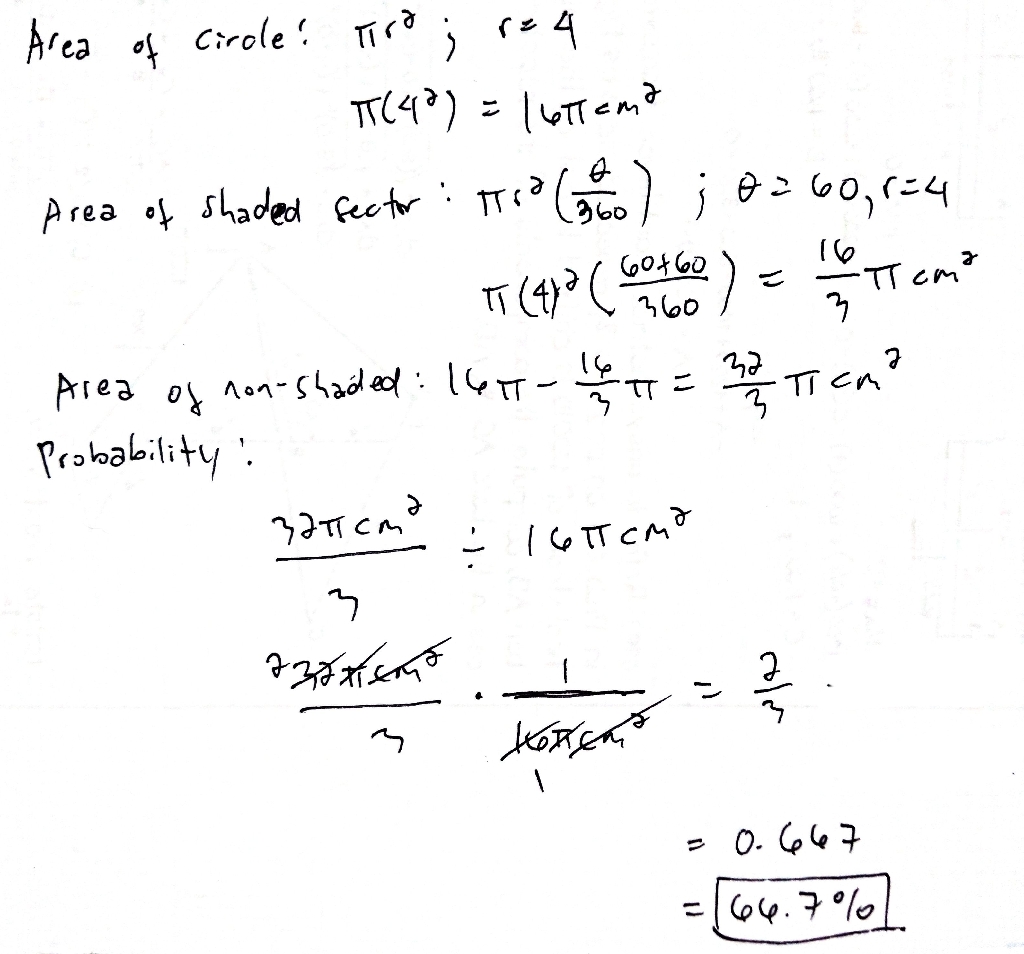 Area of circle: πr² ; r = 4
π(4²) = 16π cm²
Area of shaded sector : πr² (θ/360) ; θ = 60, r = 4
π(4)² (60+60/360) = 16/3 π cm²
Area of non-shaded : 16π - 16/3 π = 32/3 π cm²
Probability :
32π cm²/3 ÷ 16π cm²
2 32π cm²/3 · 1/16π cm² 1 = 2/3 .
= 0.667
= 66.7%